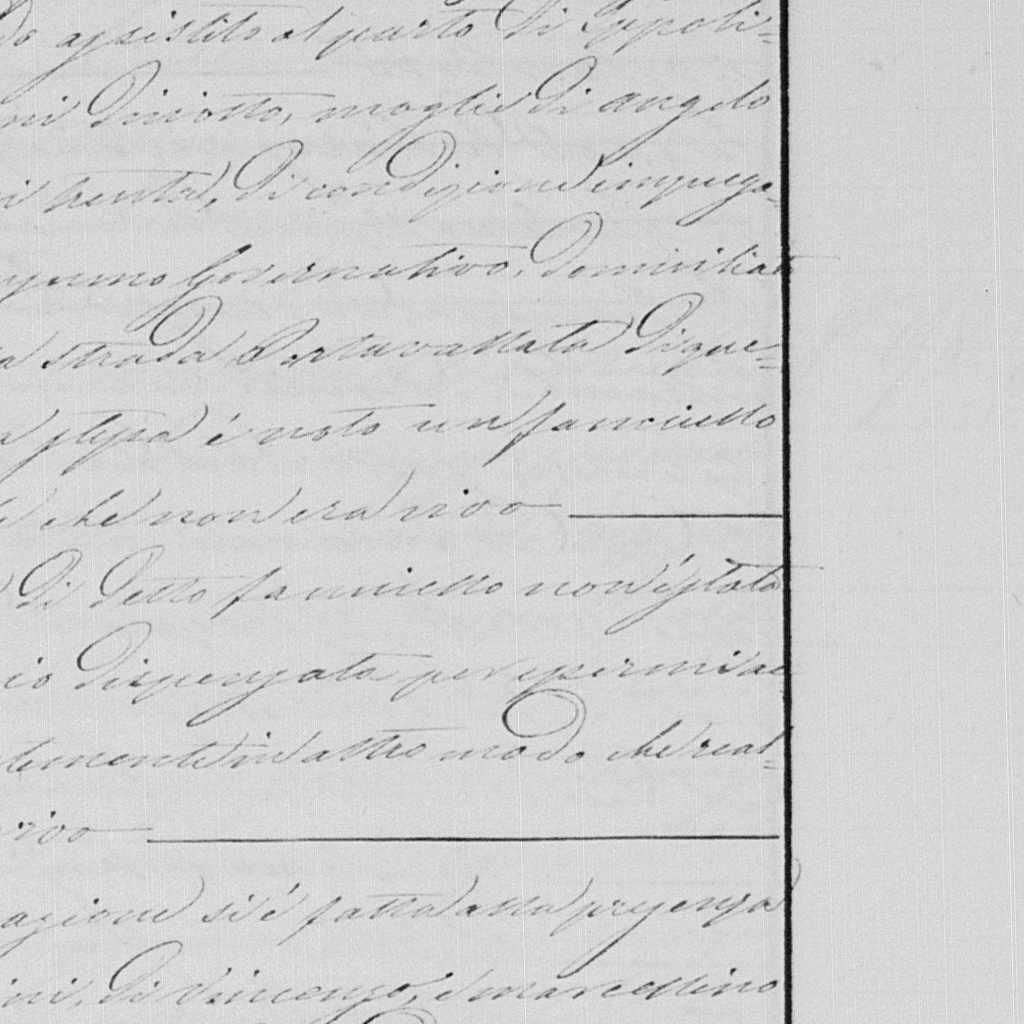 do assistito al parto di Ippoli-
ni diciotto, moglie di Angelo
ni trenta, di condizione impiega-
Governativo, domiciliat
a strada Portavallata di que-
a stessa é nato un fanciullo
che non era vivo
di detto fanciullo non é stata
io dispensata per essermi ac-
temente in altro modo che real-
vivo
azione si é fatta alla presenza
ini, di Vincenzo, e Marcellino